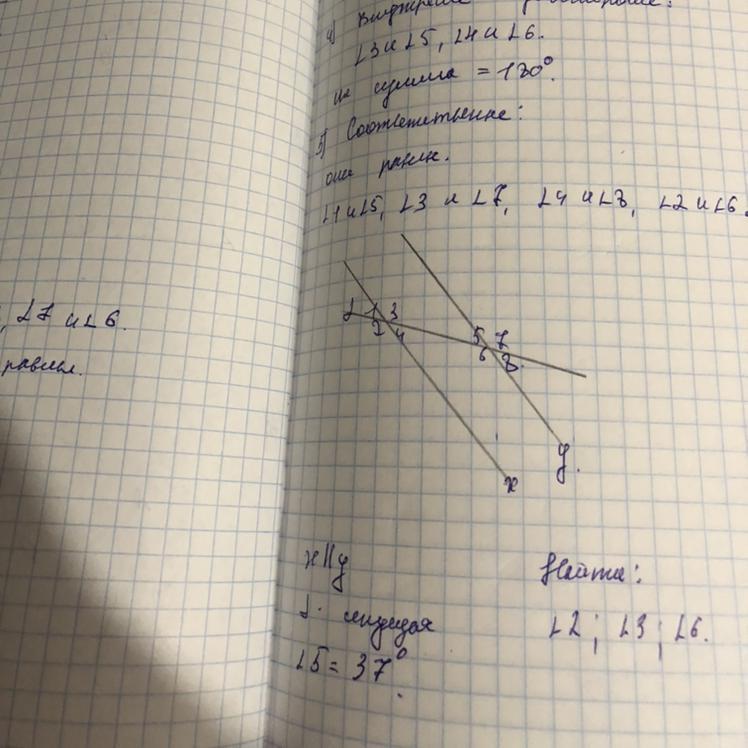 ∠3 и ∠5, ∠4 и ∠6.
их сумма = 180°.
5) Соответственные:
они равны.
∠1 и ∠5, ∠3 и ∠7, ∠4 и ∠8, ∠2 и ∠6.
∠7 и ∠6.
равны.
d 1 3
2 4
5 7
6 8
y.
x
x || y
d - секущая
∠5 = 37°.
Найти:
∠2; ∠3; ∠6.